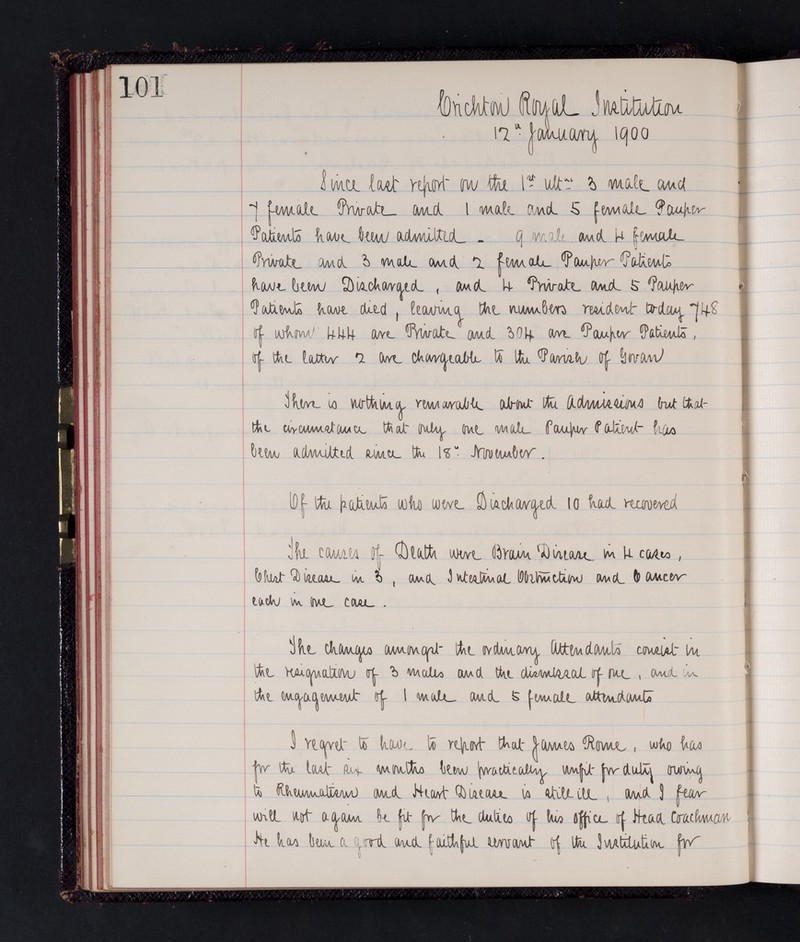 101
Crichton Royal Institution
12th January 1900
Since last report on the 1st ulto 3 male and
7 female Private and 1 male and 5 female Pauper
Patients have been admitted - 9 male and 4 female
Private and 3 male and 2 female Pauper Patients
have been Discharged, and 4 Private and 5 Pauper
Patients have died, leaving the numbers resident today 748
of whom 444 are Private and 304 are Pauper Patients,
of the latter 2 are chargeable to the Parish of Govan
There is nothing remarkable about the Admissions but that
the circumstance that only one male Pauper Patient has
been admitted since the 18th November.
Of the patients who were Discharged 10 had recovered
The causes of Death were Brain Disease in 4 cases,
Chest Disease in 3, and Intestinal Obstruction and Cancer
each in one case.
The changes amongst the ordinary Attendants consist in
the resignation of 3 males and the dismissal of one, and in
the engagement of 1 male and 5 female attendants
I regret to have to report that James Rome, who has
for the last six months been practically unfit for duty owing
to Rheumatism and Heart Disease is still ill, and I fear
will not again be fit for the duties of his office of Head Coachman
He has been a good and faithful servant of the Institution for